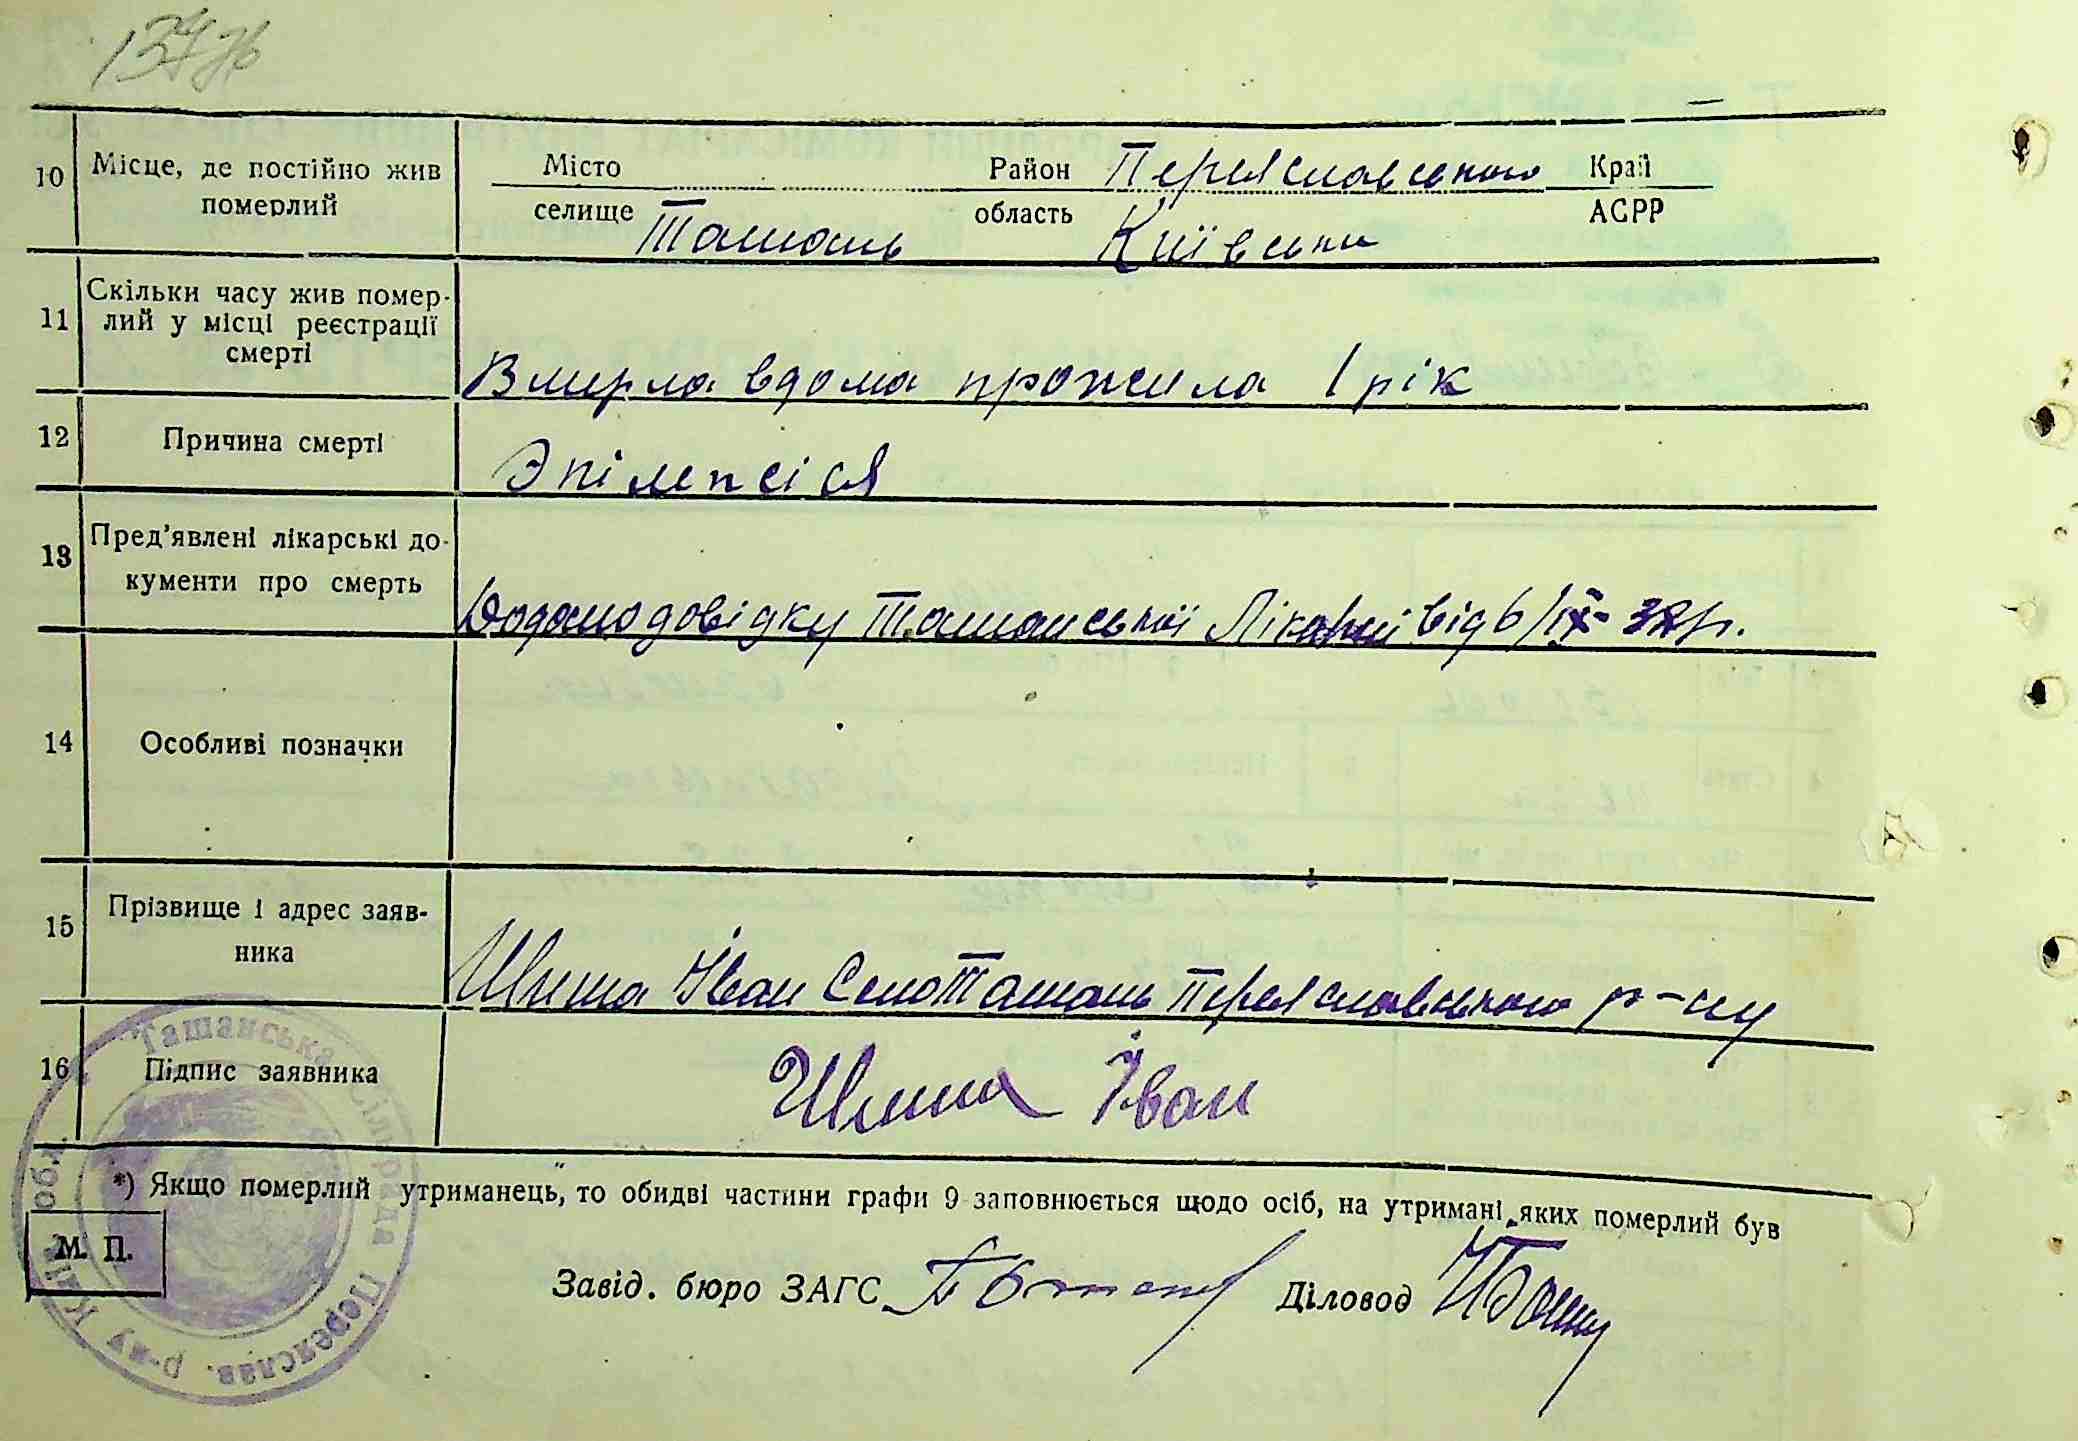 137
10 Місце, де постійно жив померлий
Місто Район Переяславського Край
селище Ташань область Київськи АСРР
11 Скільки часу жив помер-
лий у місці реєстрації
смерті
Вмирла вдома прожила 1 рік
12 Причина смерті Эпілепсіія
13 Пред'явлені лікарські до-
кументи про смерть
додамо довідку Ташанської Лікарні від 6/IX-37р.
14 Особливі позначки
15 Прізвище і адрес заяв-
ника
Іван Село Ташань Переяславського р-ну
16 Підпис заявника Іван
*) Якщо померлий „утриманець", то обидві частини графи 9 заповнюється щодо осіб, на утримані яких померлий був
М. П.
Завід. бюро ЗАГС Діловод
Ташанська сільрада Переяслав. р-ну Київ. обл.